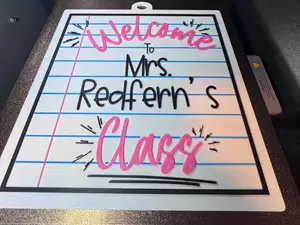 Welcome
To
Mrs.
Redfern's
Class